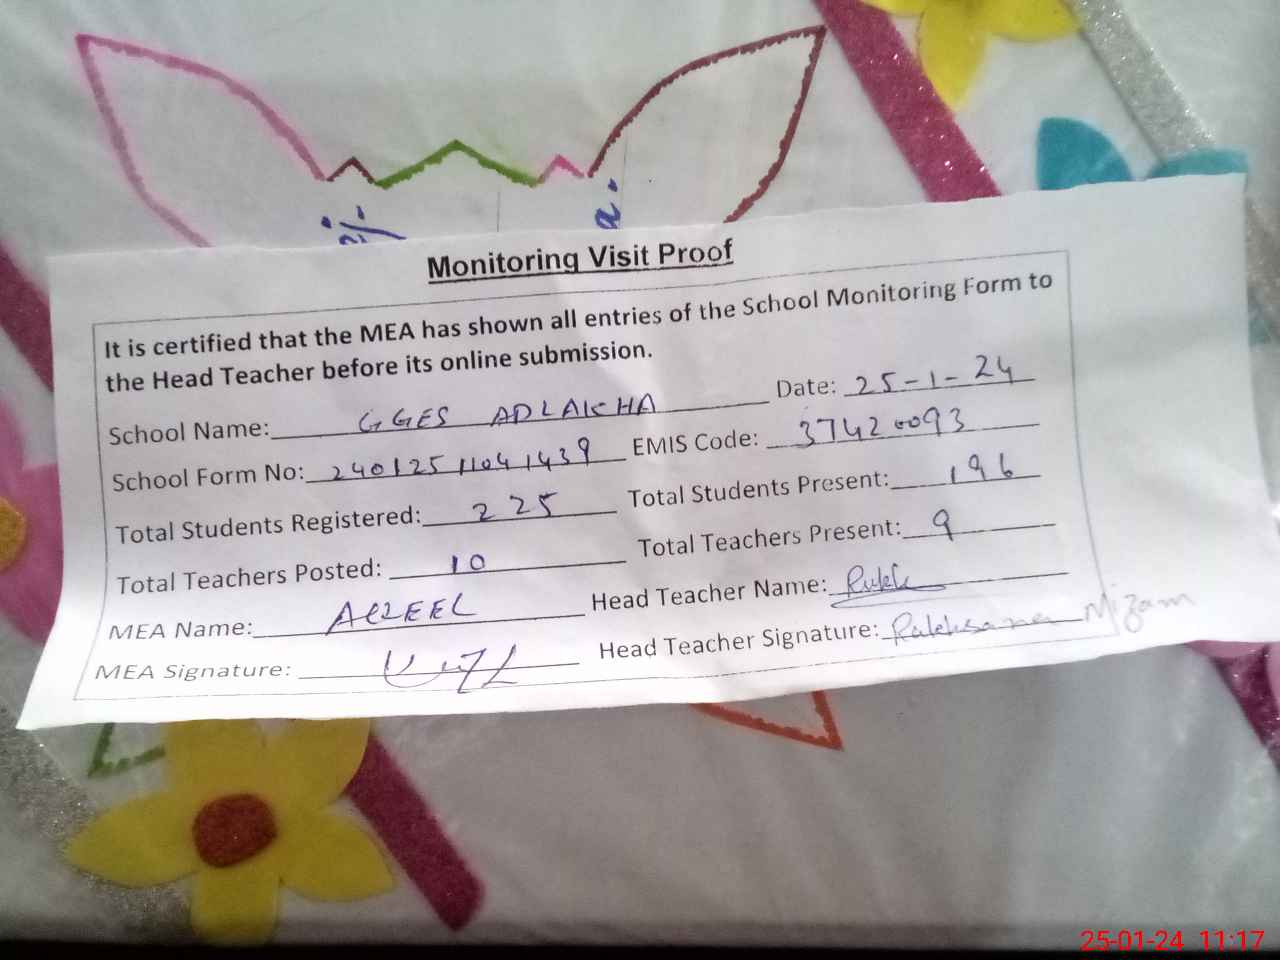 Monitoring Visit Proof
It is certified that the MEA has shown all entries of the School Monitoring Form to
the Head Teacher before its online submission.
School Name: GGES ADLAKHA Date: 25-1-24
School Form No: 24012511041439 EMIS Code: 37420093
Total Students Registered: 225 Total Students Present: 196
Total Teachers Posted: 10 Total Teachers Present: 9
MEA Name: Head Teacher Name:
MEA Signature: Head Teacher Signature: Rukhsana Nizam
25-01-24 11:17